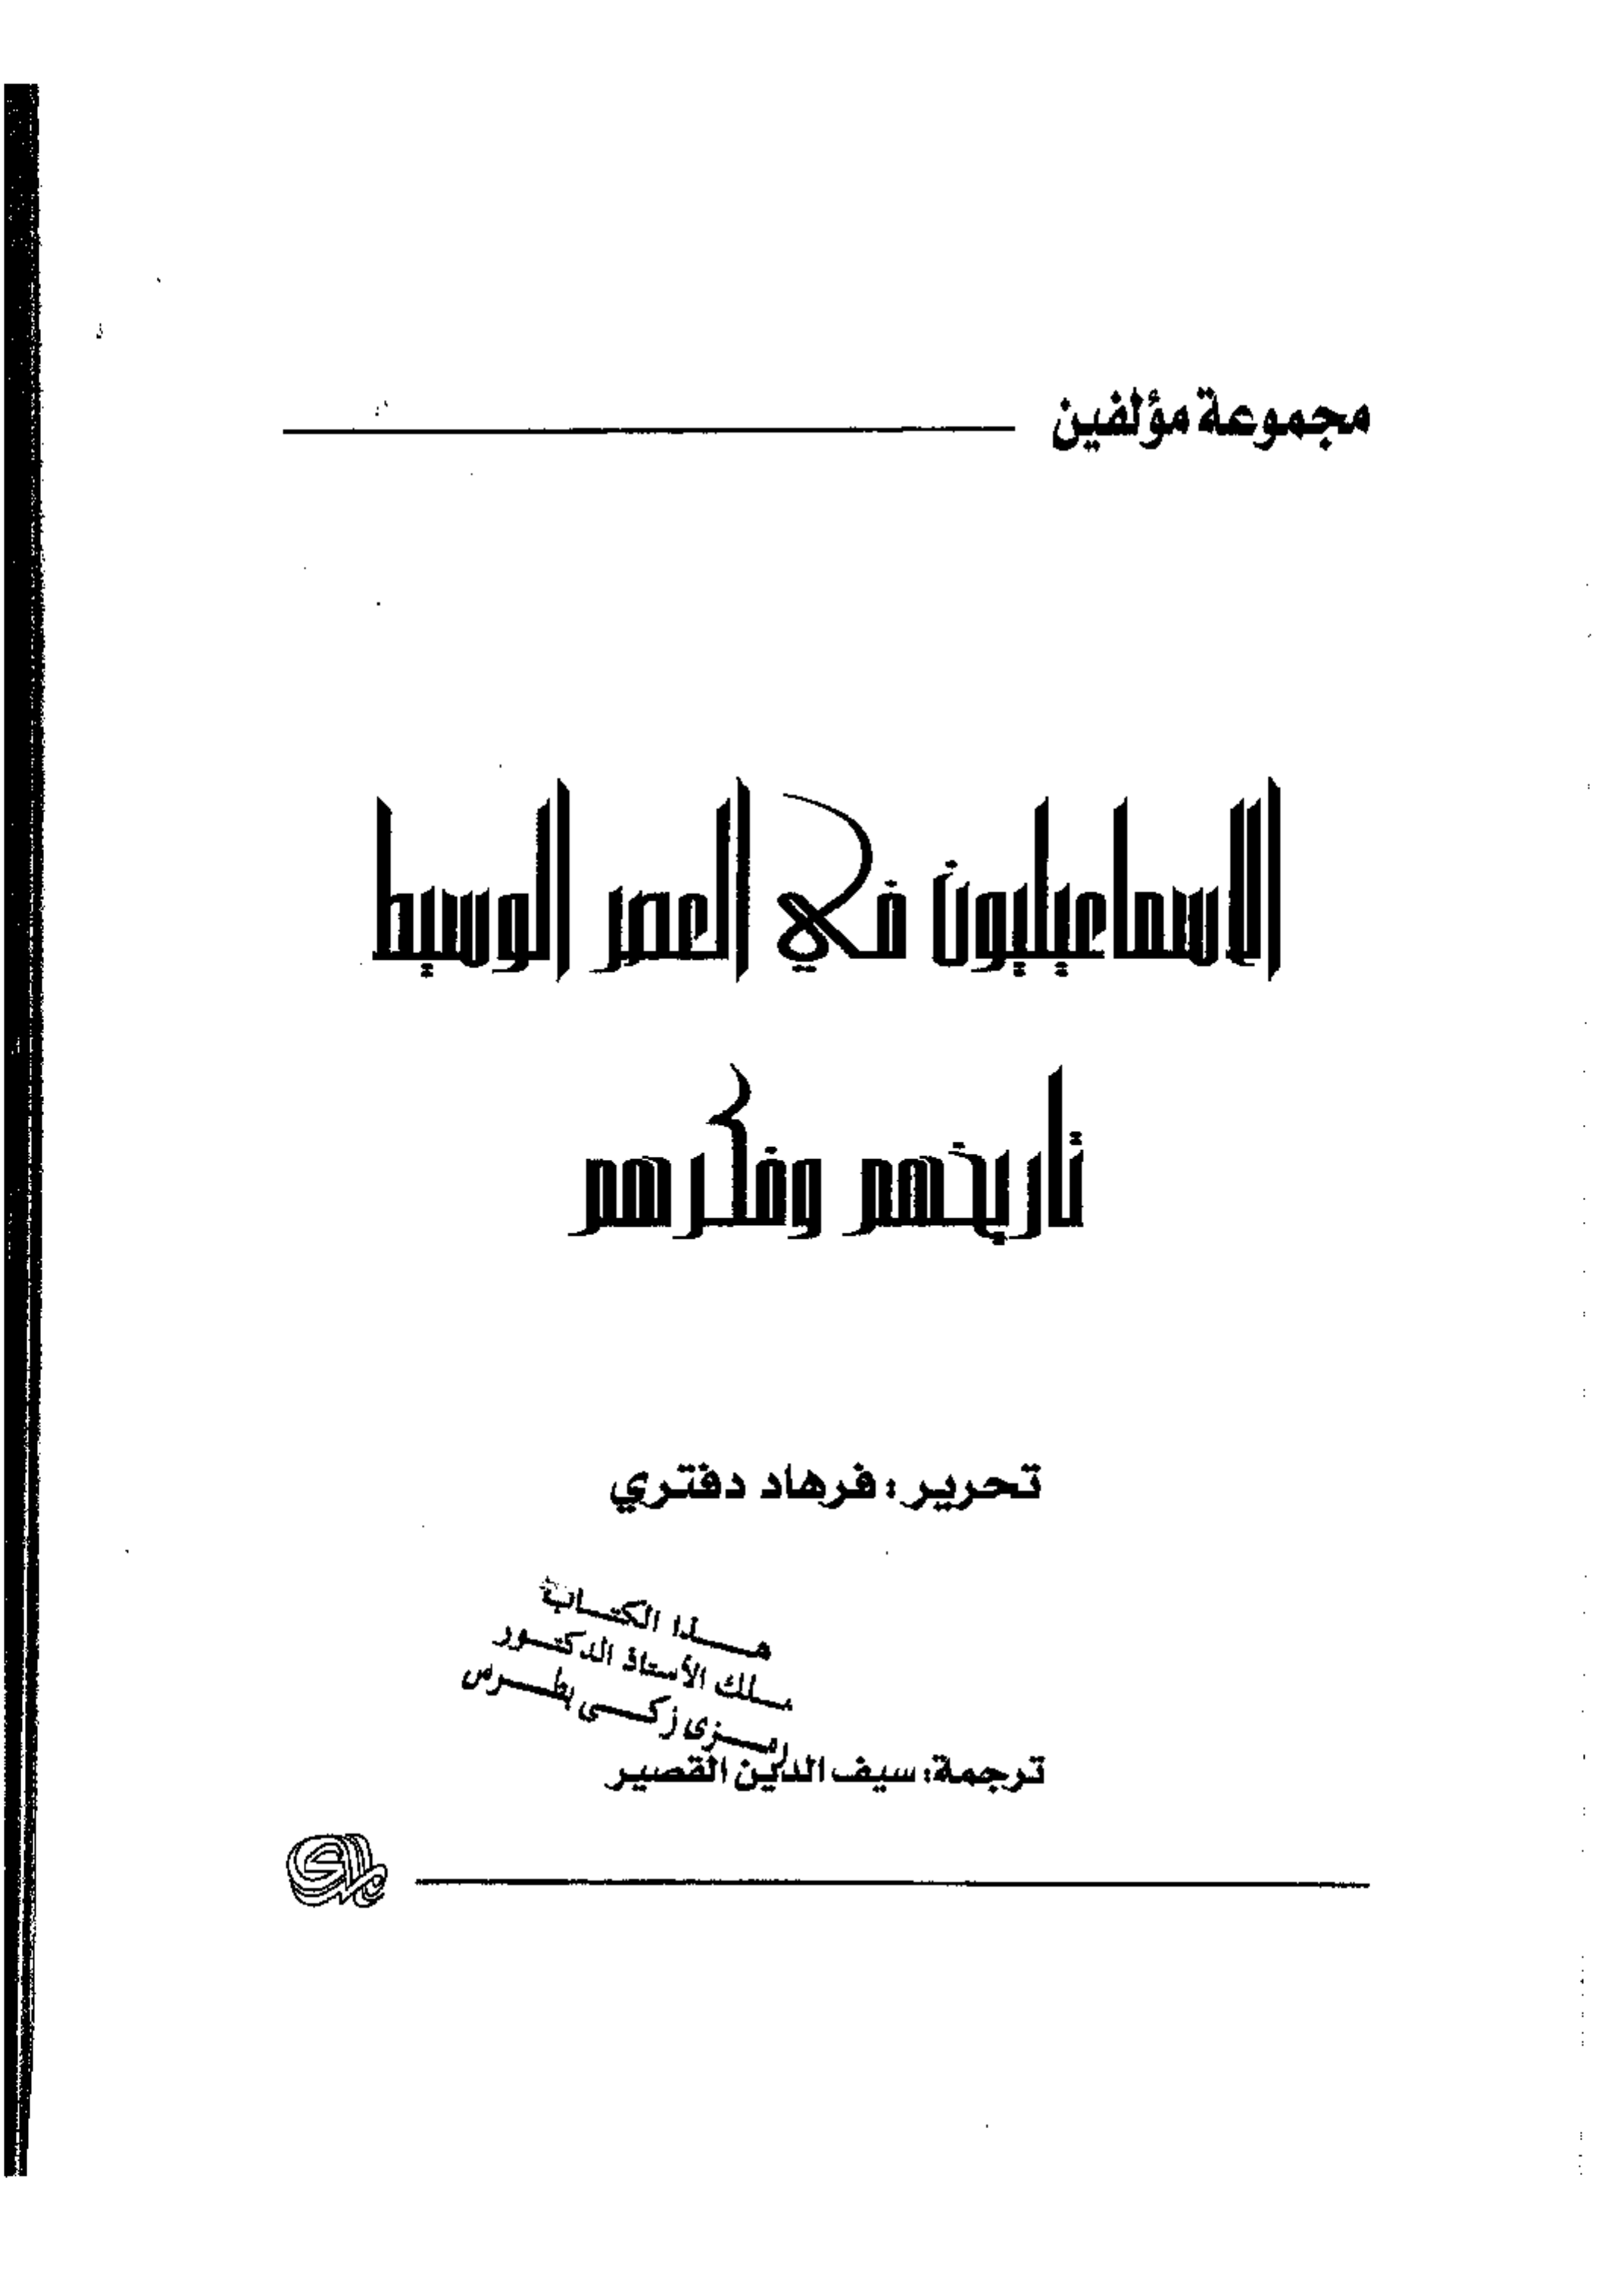 مجموعة مؤلفين
الاسماعيليون في العصر الوسيط
تاريخهم وفكرهم
تحرير: فرهاد دفتري
هذا الكتاب
ملك الأستاذ الدكتور
رمزى زكى بطرس
ترجمة: سيف الدين القصير